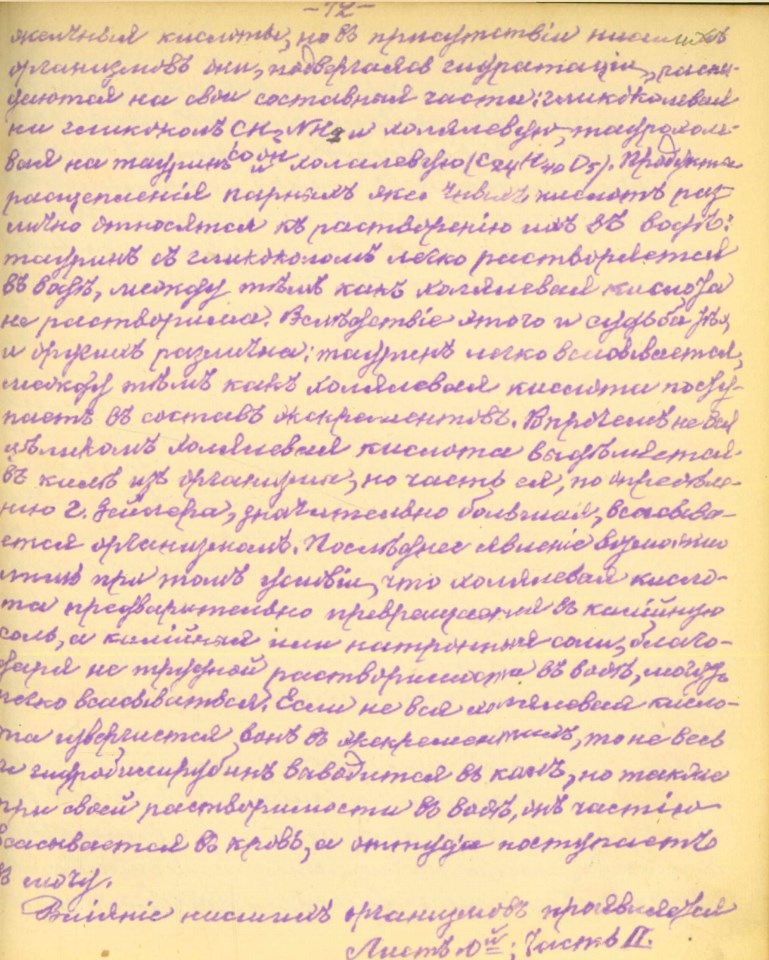 —72—
желчныя кислоты, но въ присутствіи низшихъ
организмовъ они, подвергаясь гидратаціи, распа-
даются на свои составныя части: гликоколевая
на гликоколъ CH₂NH₂ и холялевую, таурохоле-
COOH
вая на тауринъ и холалевую (C₂₄H₄₀O₅). Продукты
расщепленія парныхъ желчныхъ кислотъ раз-
лично относятся къ растворенію ихъ въ водѣ:
тауринъ съ гликоколомъ легко растворяется
въ водѣ, между тѣмъ какъ холялевая кислота
не растворима. Вслѣдствіе этого и судьба тѣхъ
и другихъ различна: тауринъ легко всасывается,
между тѣмъ какъ холялевая кислота посту-
паетъ въ составъ экскрементовъ. Впрочемъ не вся
цѣликомъ холялевая кислота выдѣляется
въ калѣ изъ организма, но часть ея, по опредѣле-
нію г., значительно большая, всасыва-
ется организмомъ. Послѣднее явленіе возможно
лишь при томъ условіи, что холялевая кисло-
та предварительно превращается въ калійную
соль, а калійныя или натронныя соли, благо-
даря не трудной растворимости въ водѣ, могутъ
легко всасываться. Если не вся холялевая кисло-
та извергается вонъ въ экскрементахъ, то не весь
и гидробилирубинъ выводится въ калъ, но также
при своей растворимости въ водѣ, онъ частію
всасывается въ кровь, а оттуда поступаетъ
въ мочу.
Вліяніе низшихъ организмовъ проявляется
Листъ 10й; Часть II.